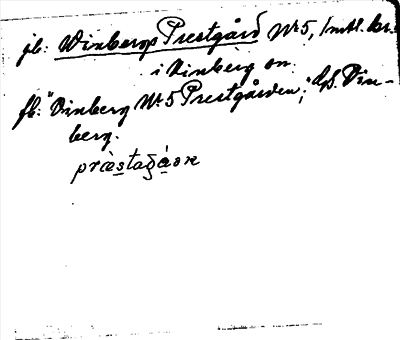 jb: Winbergs Prestgård Nr 5, 1 mtl. kr.
i Vinberg sn.
fb: "Vinberg Nr 5 Prestgården", Gd. Vin-
berg.
præ̀staɡå̀ɷn